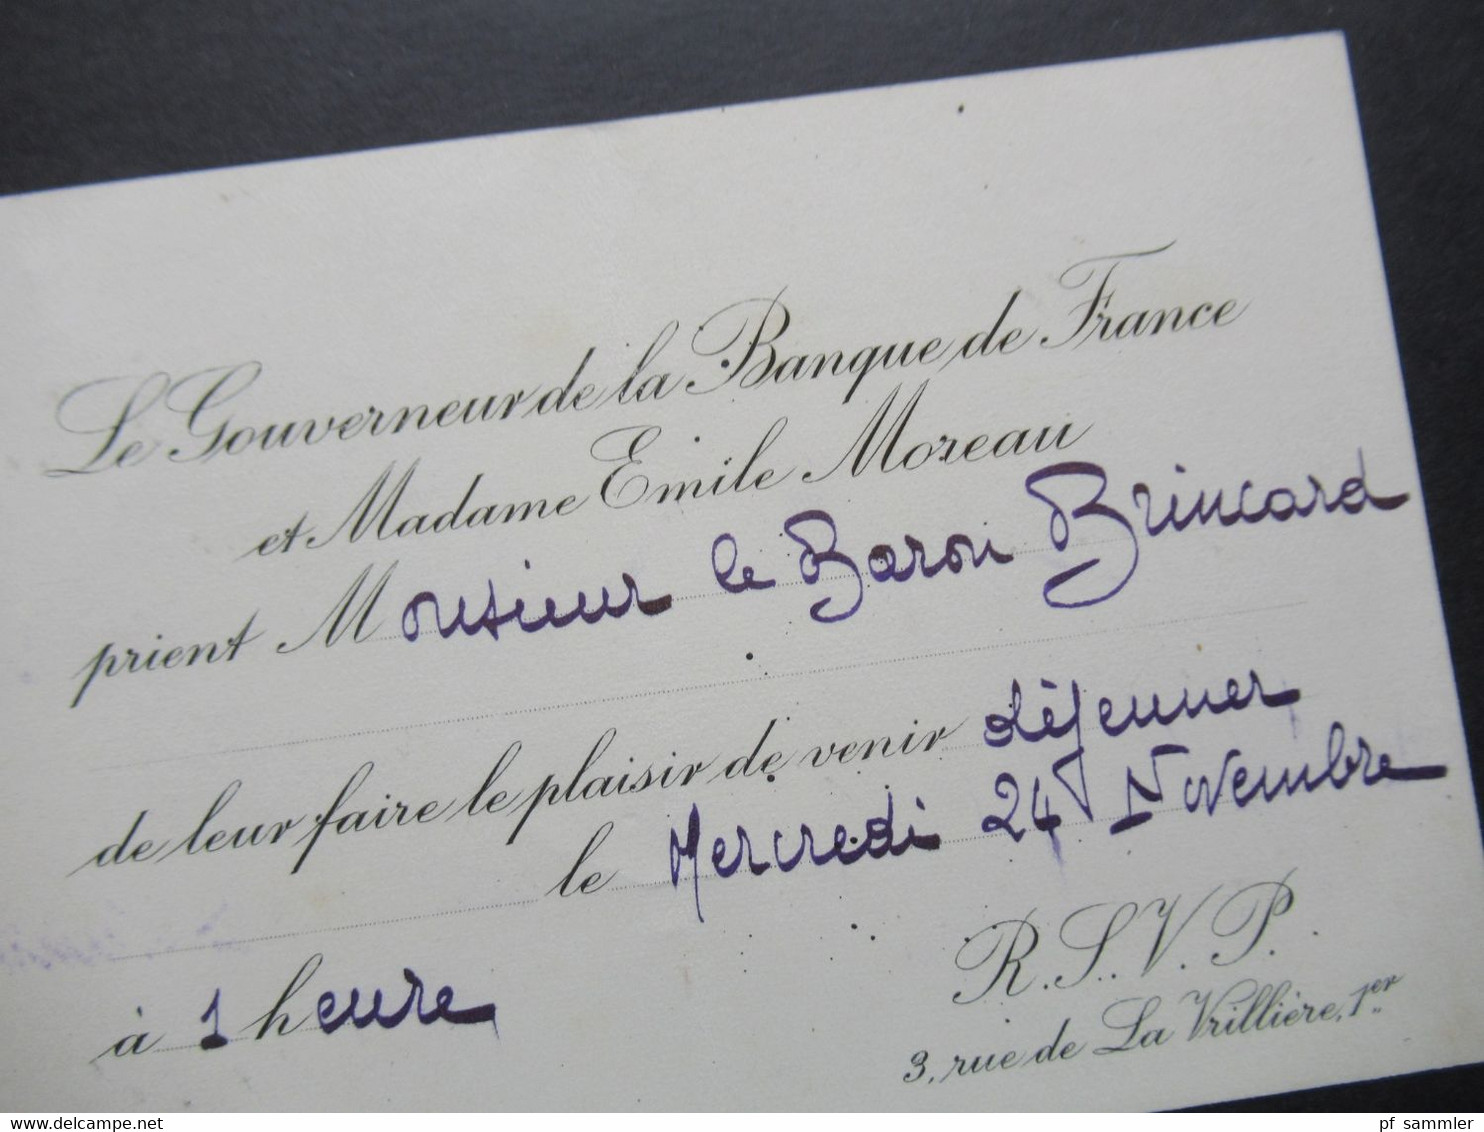 Le Gouverneur de la Banque de France
et Madame Emile Moreau
prient Monsieur le Baron Brincard
de leur faire le plaisir de venir déjeuner
le Mercredi 24 Novembre
à 1 heure
R.S.V.P.
3, rue de La Vrillière, 1er
www.delcampe.net
pf_sammler